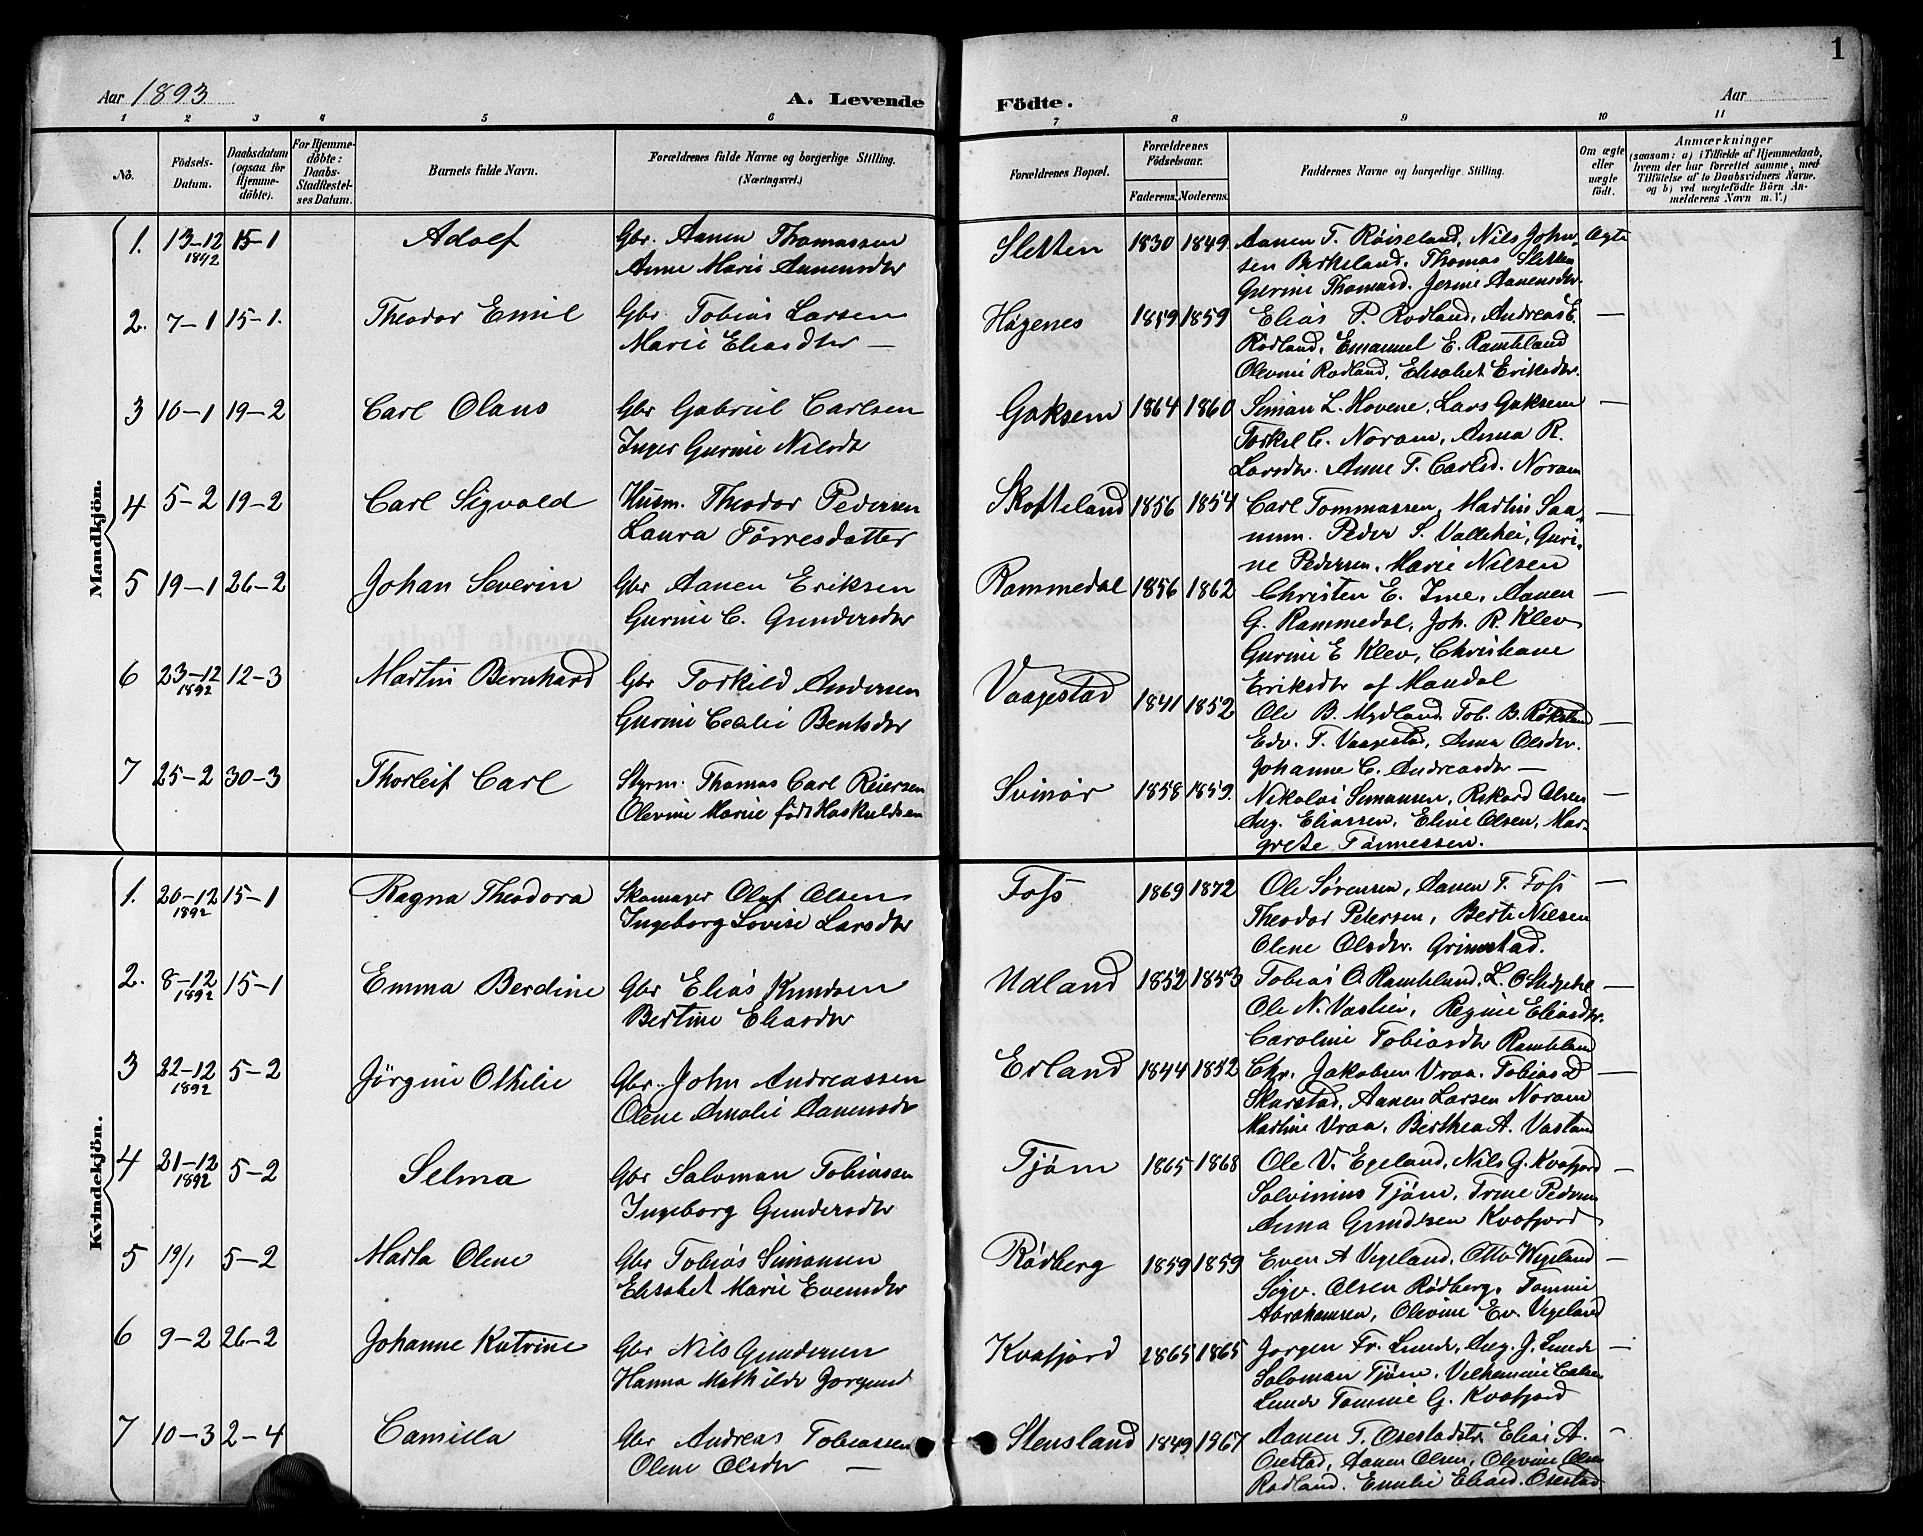 1
Aar 1893
A. Levende
Födte.
Aar
1 2 3 4 5 6 7 8 9 10 11
No.
Födsels-Datum.
Daabsdatum (ogsaa for Hjemmedöbte).
For Hjemmedöbte: Daabs-Stadfæstelses Datum.
Barnets fulde Navn.
Forældrenes fulde Navne og borgerlige Stilling.
(Næringsvei.)
Forældrenes Bopæl.
Forældrenes Födselsaar.
Faderens. Moderens.
Faddernes Navne og borgerlige Stilling.
Om ægte eller uægte födt.
Anmærkninger
(saasom: a) i Tilfælde af Hjemmedaab,
hvem der har forrettet samme, med
Tilföielse af to Daabsvidners Navne,
og b) ved uægtefödte Börn Anmelderens Navn m. V.)
Mandkjön.
1. 13-12 1892 15-1 Adolf Gbr. Aanen Thomassen Sletten 1830 1849 Aanen T. Röiseland, Nils John- Ægte
Anne Marie Aanensdtr sen Birkeland. Thomas Sletten
Gurine Thomasd. Jesine Aanensdtr.
2. 7-1 15-1. Theodor Emil Gbr. Tobias Larsen Høgenes 1859 1859 Elias P. Rodland, Andreas E. —
Marie Eliasdtr — Rødland, Emanuel E. Ramsland
Olevine Rodland, Elisabet Eriksdtr.
3 16-1 19-2 Carl Olaus Gbr Gabriel Carlsen Goksem 1864 1860 Simon L. Hovene, Lars Goksem —
Inger Gurine Nilsdtr Torkel C. Noram, Anna R.
Larsdtr. Anne T. Carlsd. Noram
4 5-2 19-2 Carl Sigvald Husm. Theodor Pedersen Skofteland 1856 1854 Carl Tommassen, Martin Saa- —
Laura Tørresdatter mum. Peder S. Vallehei, Guri-
ne Pedersen, Marie Nilsen
5 19-1 26-2 Johan Severin Gbr Aanen Eriksen Rammedal 1856 1862 Christen E. Ime, Aanen —
Gurine C. Gundersdtr G. Rammedal, Joh. R. Klev
Gurine E Klev, Christiane
Eriksdtr af Mandal
6 23-12 1892 12-3 Martin Bernhard Gbr Torkild Andersen Vaagestad 1841 1852 Ole B. Mydland Tob. B. —
Gurine Cecilie Bentsdtr Edv. T. Vaagestad, Anna Olsdtr.
Johanne C. Andreasdtr —
7 25-2 30-3 Thorleif Carl Styrm. Thomas Carl Reiersen Svinör 1858 1859. Nikolai Simonsen, Rikard Olsen —
Olevine Marie födt Haskuldsen Aug. Eliassen, Eline Olsen, Mar-
grete Tönnessen.
Kvindekjön.
1. 20-12 1892 15-1 Ragna Theodora Skomager Olaf Olsen Foss 1869 1872 Ole Sørensen, Aanen T. Foss —
Ingeborg Lovise Larsdtr Theodor Petersen, Berte Nilsen
Olene Olsdtr. Grimestad.
2. 8-12 1892 15-1 Emma Berdine Gbr Elias Knudsen Udland 1852 1853 Tobias O. Ramsland, L. O —
Bertine Eliasdtr Ole N. Regine Eliasdtr.
Caroline Tobiasdtr Ramsland
3 22-12 1892 5-2 Jörgine Othilie Gbr. John Andreassen Erland 1844 1852 Chr. Jakobsen Vraa. Tobias —
Olene Amalie Aanensdtr Skarstad, Aanen Larsen Noram
Martine Vraa, Berthea A.
4 21-12 1892 5-2 Selma Gbr Saloman Tobiassen Tjöm 1865 1868 Ole V. Egeland, Nils G. Kvafjord —
Ingeborg Gundersdtr Salvinius Tjöm, Trine Pedersen
Anna Gundersen Kvafjord
5 19/1 5-2 Marta Olene Gbr Tobias Simonsen Rödberg 1859 1859 Even A Vigeland, Otto Vigeland —
Elisabet Marie Evensdtr Sigv. Olsen Rödberg, Tomine
Abrahamsen, Olevine Ev. Vigeland
6 9-2 26-2 Johanne Katrine Gbr Nils Gundersen Kvafjord 1865 1865 Jorgen Fr. Lunde, Aug. J. Lunde —
Hanna Mathilde Jorgensd Saloman Tjöm, Vilhemine
Lunde Tomine G. Kvafjord
7 10-3 2-4 Camilla Gbr Andreas Tobiassen Stensland 1849 1967 Aanen T. Elias A. —
Olene Olsdtr — Osestad, Aanen Olsen, Olevine Olsen
Rodland. Emilie Eliasd. Osestad